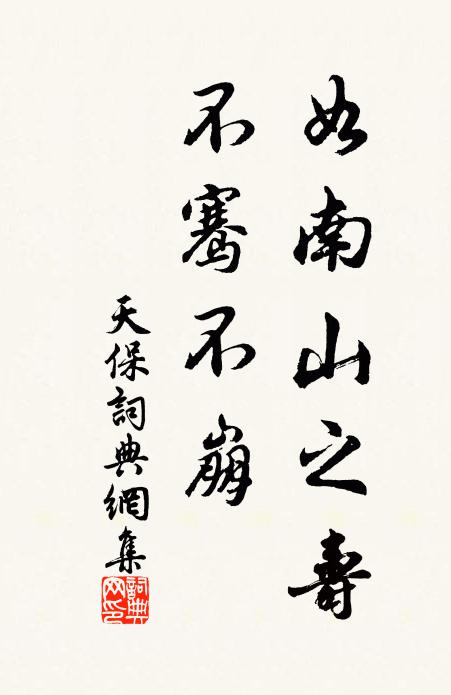 如南山之壽
不騫不崩
天保詞典網集
詞典网印